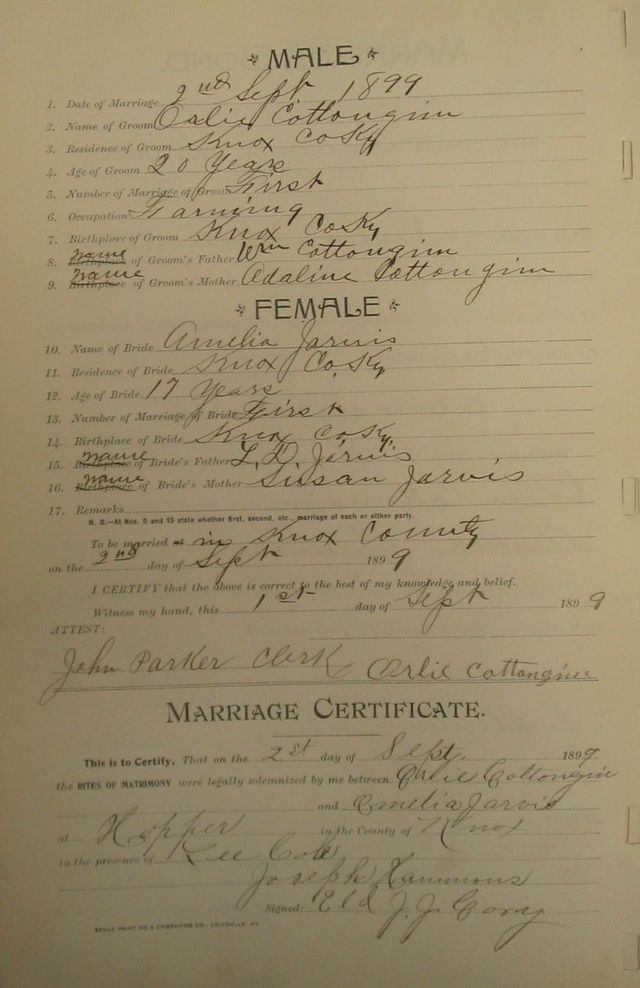 MALE
1. Date of Marriage 2nd Sept 1899
2. Name of Groom Orlie Cottongim
3. Residence of Groom Knox Co Ky
4. Age of Groom 20 Years
5. Number of Marriage of Groom First
6. Occupation Farming
7. Birthplace of Groom Knox Co Ky
8. Birthplace name of Groom's Father Wm Cottongim
9. Birthplace name of Groom's Mother Adaline Cottongim
FEMALE
10. Name of Bride Amelia Jarvis
11. Residence of Bride Knox Co. Ky
12. Age of Bride 17 Years
13. Number of Marriage of Bride First
14. Birthplace of Bride Knox Co Ky.
15. Birthplace name of Bride's Father L. D. Jarvis
16. Birthplace name of Bride's Mother Susan Jarvis
17. Remarks
N. B.—At Nos. 5 and 13 state whether first, second, etc., marriage of each or either party.
To be married at in Knox County
on the 2nd day of Sept 1899
I CERTIFY that the above is correct to the best of my knowledge and belief.
Witness my hand, this 1st day of Sept 1899
ATTEST:
John Parker Clerk Orlie Cottongim
MARRIAGE CERTIFICATE.
This is to Certify. That on the 2st day of Sept. 1899
the RITES OF MATRIMONY were legally solemnized by me between Orlie Cottongin
and Emelia Jarvis
at Hopper in the County of Knox
in the presence of Lee Cole
Joseph Hammons
Signed: Eld J. J. Cory